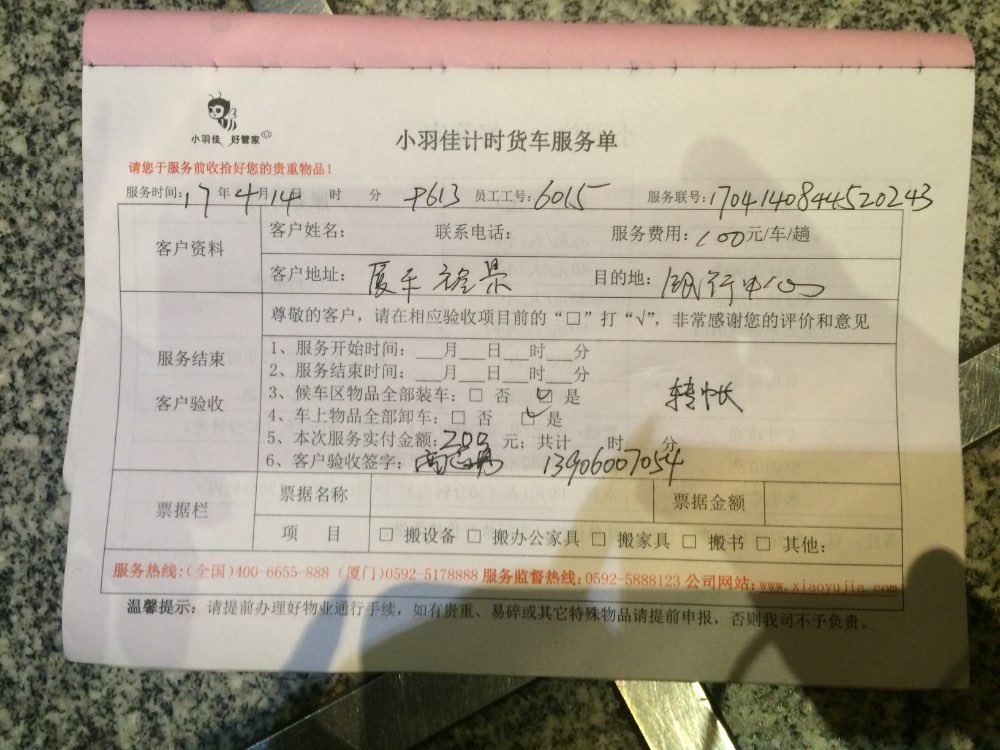 小羽佳 好管家
小羽佳计时货车服务单
请您于服务前收拾好您的贵重物品！
服务时间：17年4月14日 时 分 P613 员工工号：6015 服务联号：17041408444520243
客户资料 客户姓名： 联系电话： 服务费用：100元/车/趟
客户地址：厦禾裕景 目的地：银行中心
尊敬的客户，请在相应验收项目前的“□”打“√”，非常感谢您的评价和意见
服务结束
客户验收
1、服务开始时间：___月___日___时___分
2、服务结束时间：___月___日___时___分
3、候车区物品全部装车：□ 否 □ 是 转帐
4、车上物品全部卸车：□ 否 □ 是
5、本次服务实付金额：200 元；共计 时 分
6、客户验收签字： 13906007054
票据栏 票据名称 票据金额
项 目 □ 搬设备 □ 搬办公家具 □ 搬家具 □ 搬书 □ 其他：
服务热线：(全国)400-6655-888 (厦门)0592-5178888 服务监督热线：0592-5888123 公司网站：www.xiaoyujia.com
温馨提示：请提前办理好物业通行手续，如有贵重、易碎或其它特殊物品请提前申报，否则我司不予负责。